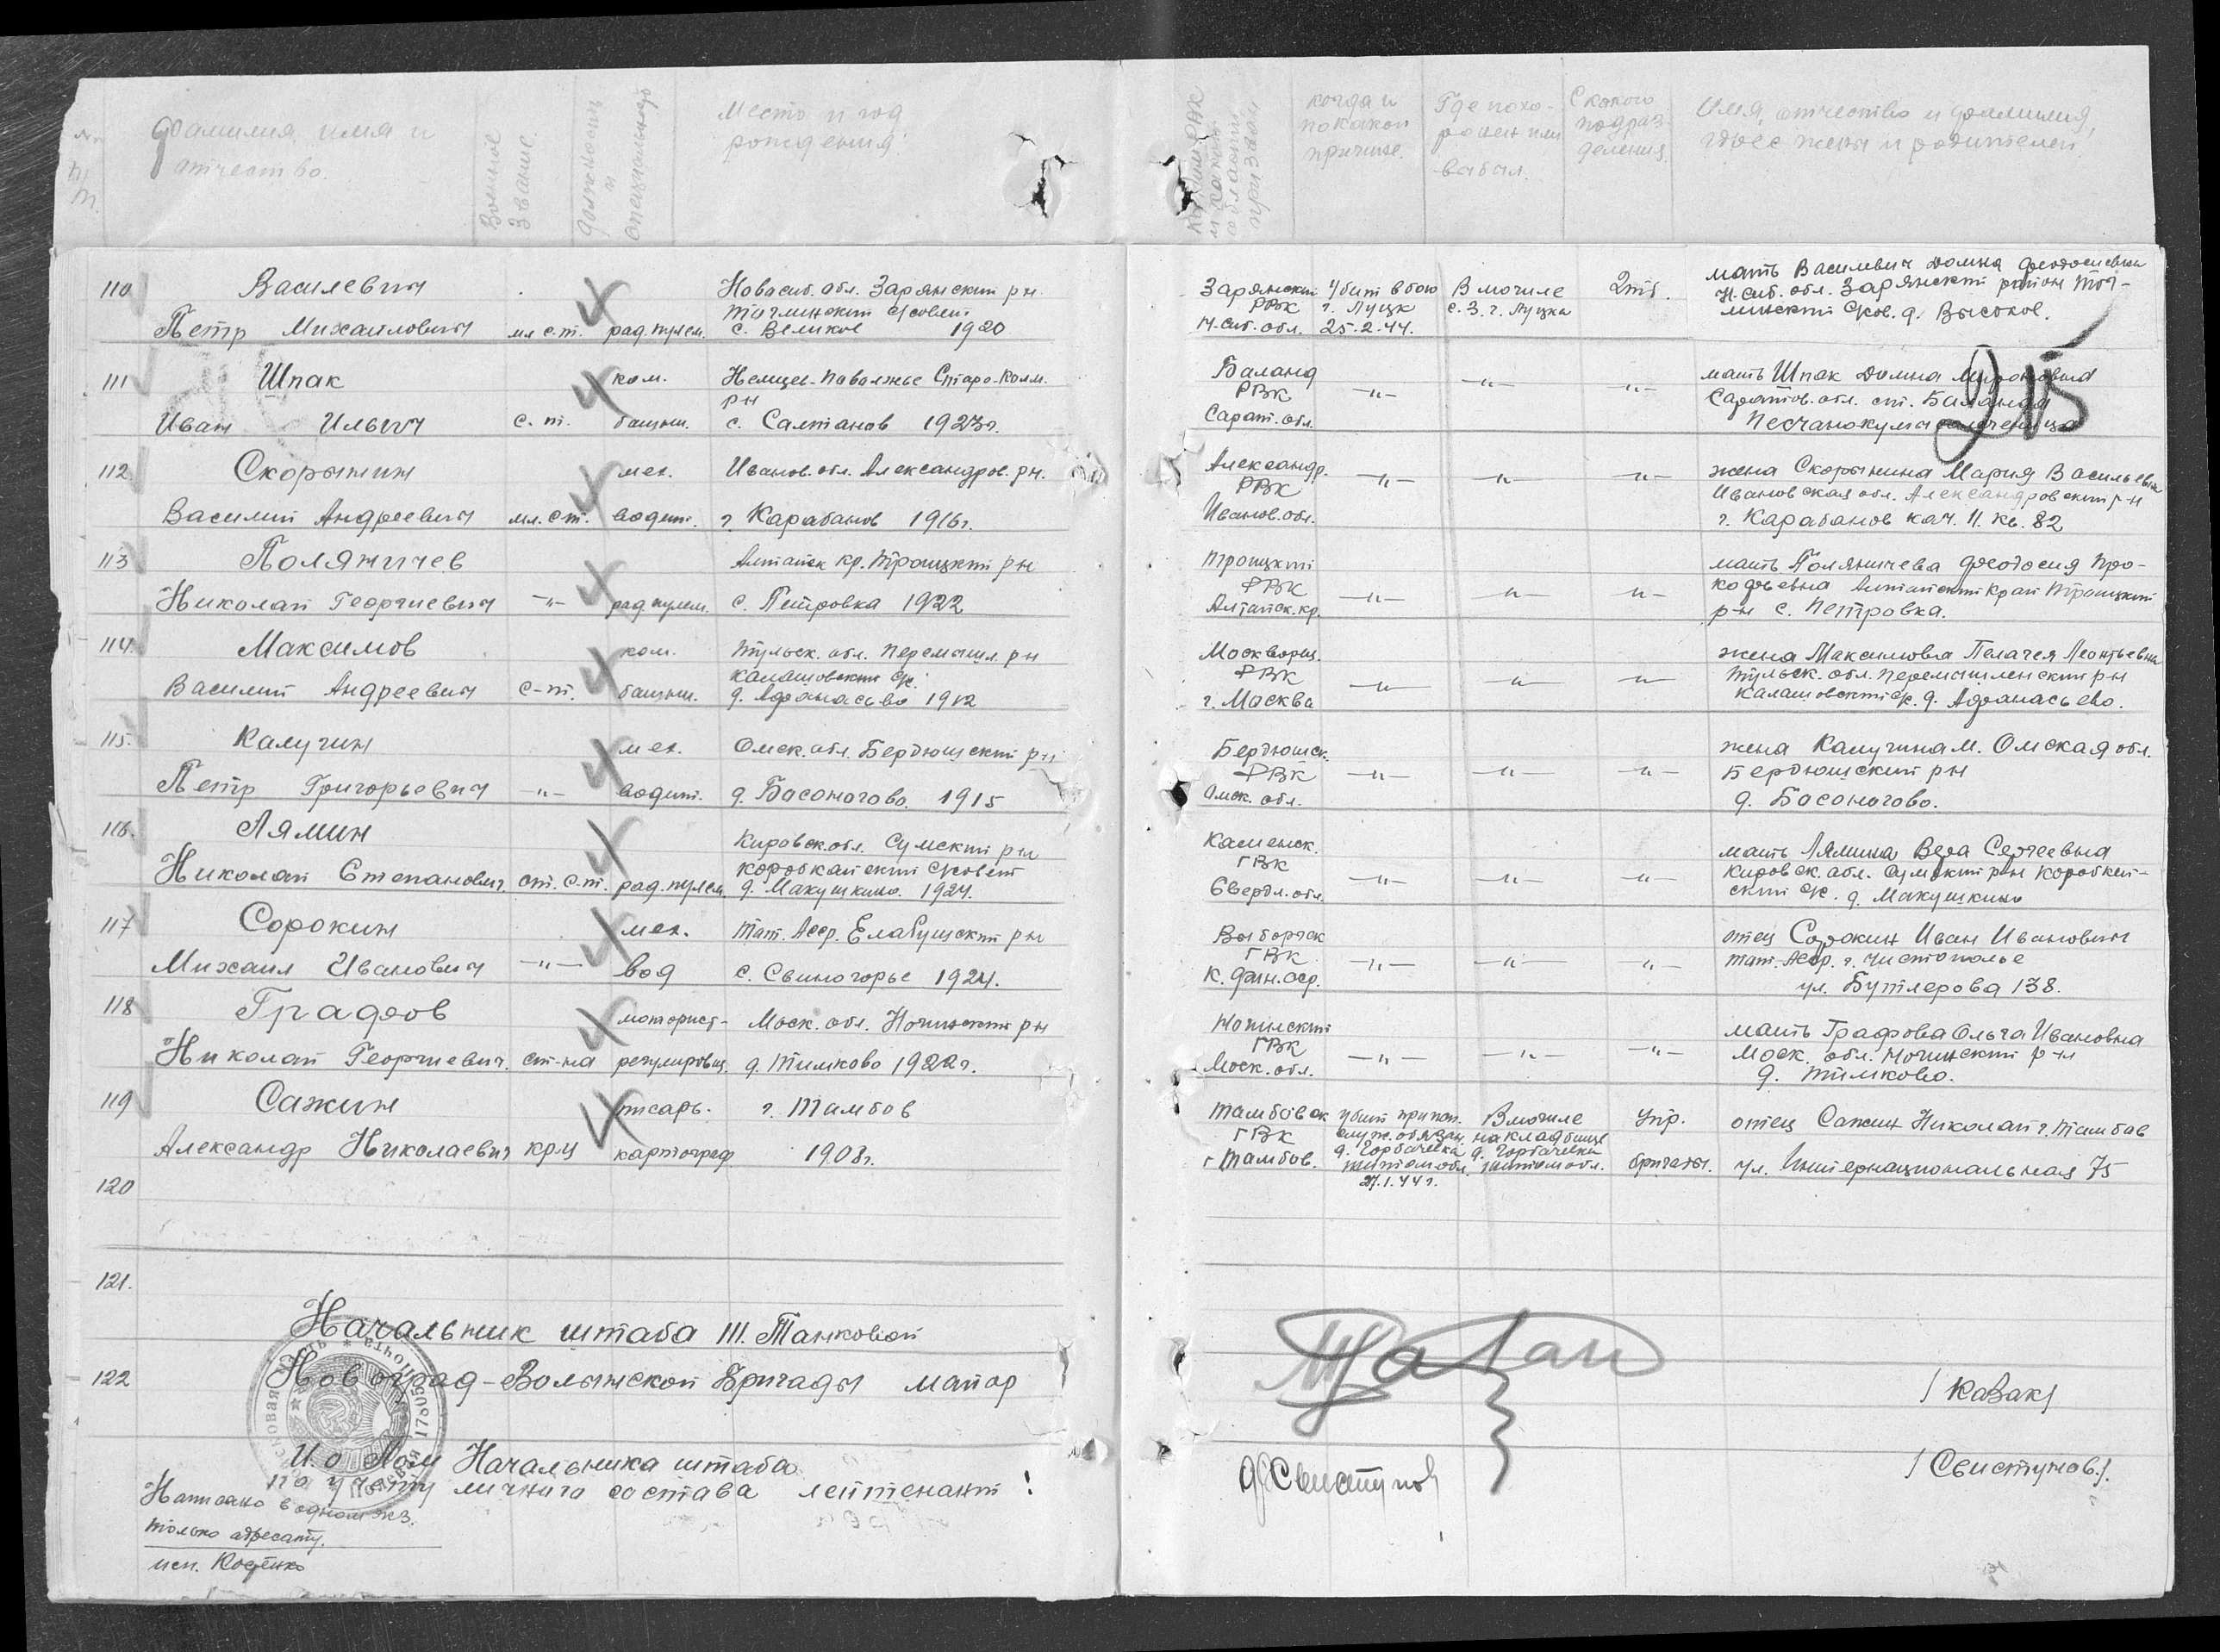 № п/п.
Фамилия имя и отчество.
Военное звание.
Должность и специальность
Место и год рождения.
Каким РВК и какой области призван
когда и по какой причине.
Где похоронен или выбыл.
С какого подразделения.
Имя, отчество и фамилия, адрес жены и родителей
110 Василевич
Петр Михайлович мл с.т. рад. пулем.
Новосиб. обл. Зарянский рн
с. Великое 1920
Зарянский РВК Н.сиб. обл.
Убит в бою г. Луцк 25.2.44.
В могиле с.з. г. Луцка
2тб.
мать Василевич Домна Феодосиевна
Н.сиб. обл. Зарянский район
д. Высокое.
111 Шпак
Иван Ильич с.т. ком. башни.
Немцев-Поволжье Старо-Колм. рн
с. Салтанов 1923г.
Баланд РВК Сарат. обл.
-"- -"- -"-
мать Шпак Домна Мироновна
Саратов. обл. ст. Баланда
25
112 Скорынин
Василий Андреевич мл. с.т. мех. водит.
Иванов. обл. Александров. рн.
г. Карабанов 1916г.
Александр. РВК Иванов. обл.
-"- -"- -"-
жена Скорынина Мария Васильевна
Ивановская обл. Александровский р-н
г. Карабанов кач. 11. кв. 82
113 Поляничев
Николай Георгиевич -"- рад пулем.
Алтайск кр. Троицкий рн
с. Петровка 1922
Троицкий РВК Алтайск. кр.
-"- -"- -"-
мать Поляничева Феодосия Про-
кофьевна Алтайский край Троицкий
р-н с. Петровка.
114. Максимов
Василий Андреевич с-т. ком. башни.
Тульск. обл. Перемышл. рн
Калашовский с/с.
д. Афанасьво 1912
Москворец. РВК г. Москва
-"- -"- -"-
жена Максимова Пелагея Леонтьевна
Тульск. обл. Перемышленский рн
Калашовский с/с. д. Афанасьево.
115. Калугин
Петр Григорьевич -"- мех. водит.
Омск. обл. Бердюшский рн
д. Босоногово. 1915
Бердюшск. РВК Омск. обл.
-"- -"- -"-
жена Калугина М. Омская обл.
Бердюшский рн
д. Босоногово.
116. Лямин
Николай Степанович ст. с.т. рад. пулем.
Кировск. обл. Сумский рн
Коробкайский с/совет
д. Макушкино. 1924.
Каменск. ГВК Свердл. обл.
-"- -"- -"-
мать Лямина Вера Сергеевна
Кировск. обл. Сумский рн Коробкай-
ский с/с. д. Макушкино
117 Сорокин
Михаил Иванович -"- мех. вод
Тат. Асср. Елабушский рн
с. Свиногорье 1924.
Выборгск ГВК К. фин. сср.
-"- -"- -"-
отец Сорокин Иван Иванович
Тат. Асср. г. Чистополье
ул. Бутлерова 138.
118 Графов
Николай Георгиевич. ст-на моторист-регулировщ.
Моск. обл. Ногинский рн
д. Тимково 1922г.
Ногинский ГВК Моск. обл.
-"- -"- -"-
мать Графова Ольга Ивановна
Моск. обл. Ногинский р-н
д. Тимково.
119 Сажин
Александр Николаевич кр-ц писарь. картограф
г. Тамбов
1908г.
Тамбовск ГВК г Тамбов.
Убит при исп. служ. обязан. д. Горбачевка Житом обл. 27.1.44г.
В могиле на кладбище д. Горбачевка Житом обл.
Упр. бригады.
отец Сажин Николай г. Тамбов
ул. Интернациональная 75
120
121.
Начальник штаба 111. Танковой
122 Новоград-Волынской Бригады майор
/Казак/
И.о Пом Начальника штаба
по учету личного состава лейтенант
/Свистунов./
Написано в одном экз.
только адресату.
исп. Костенко